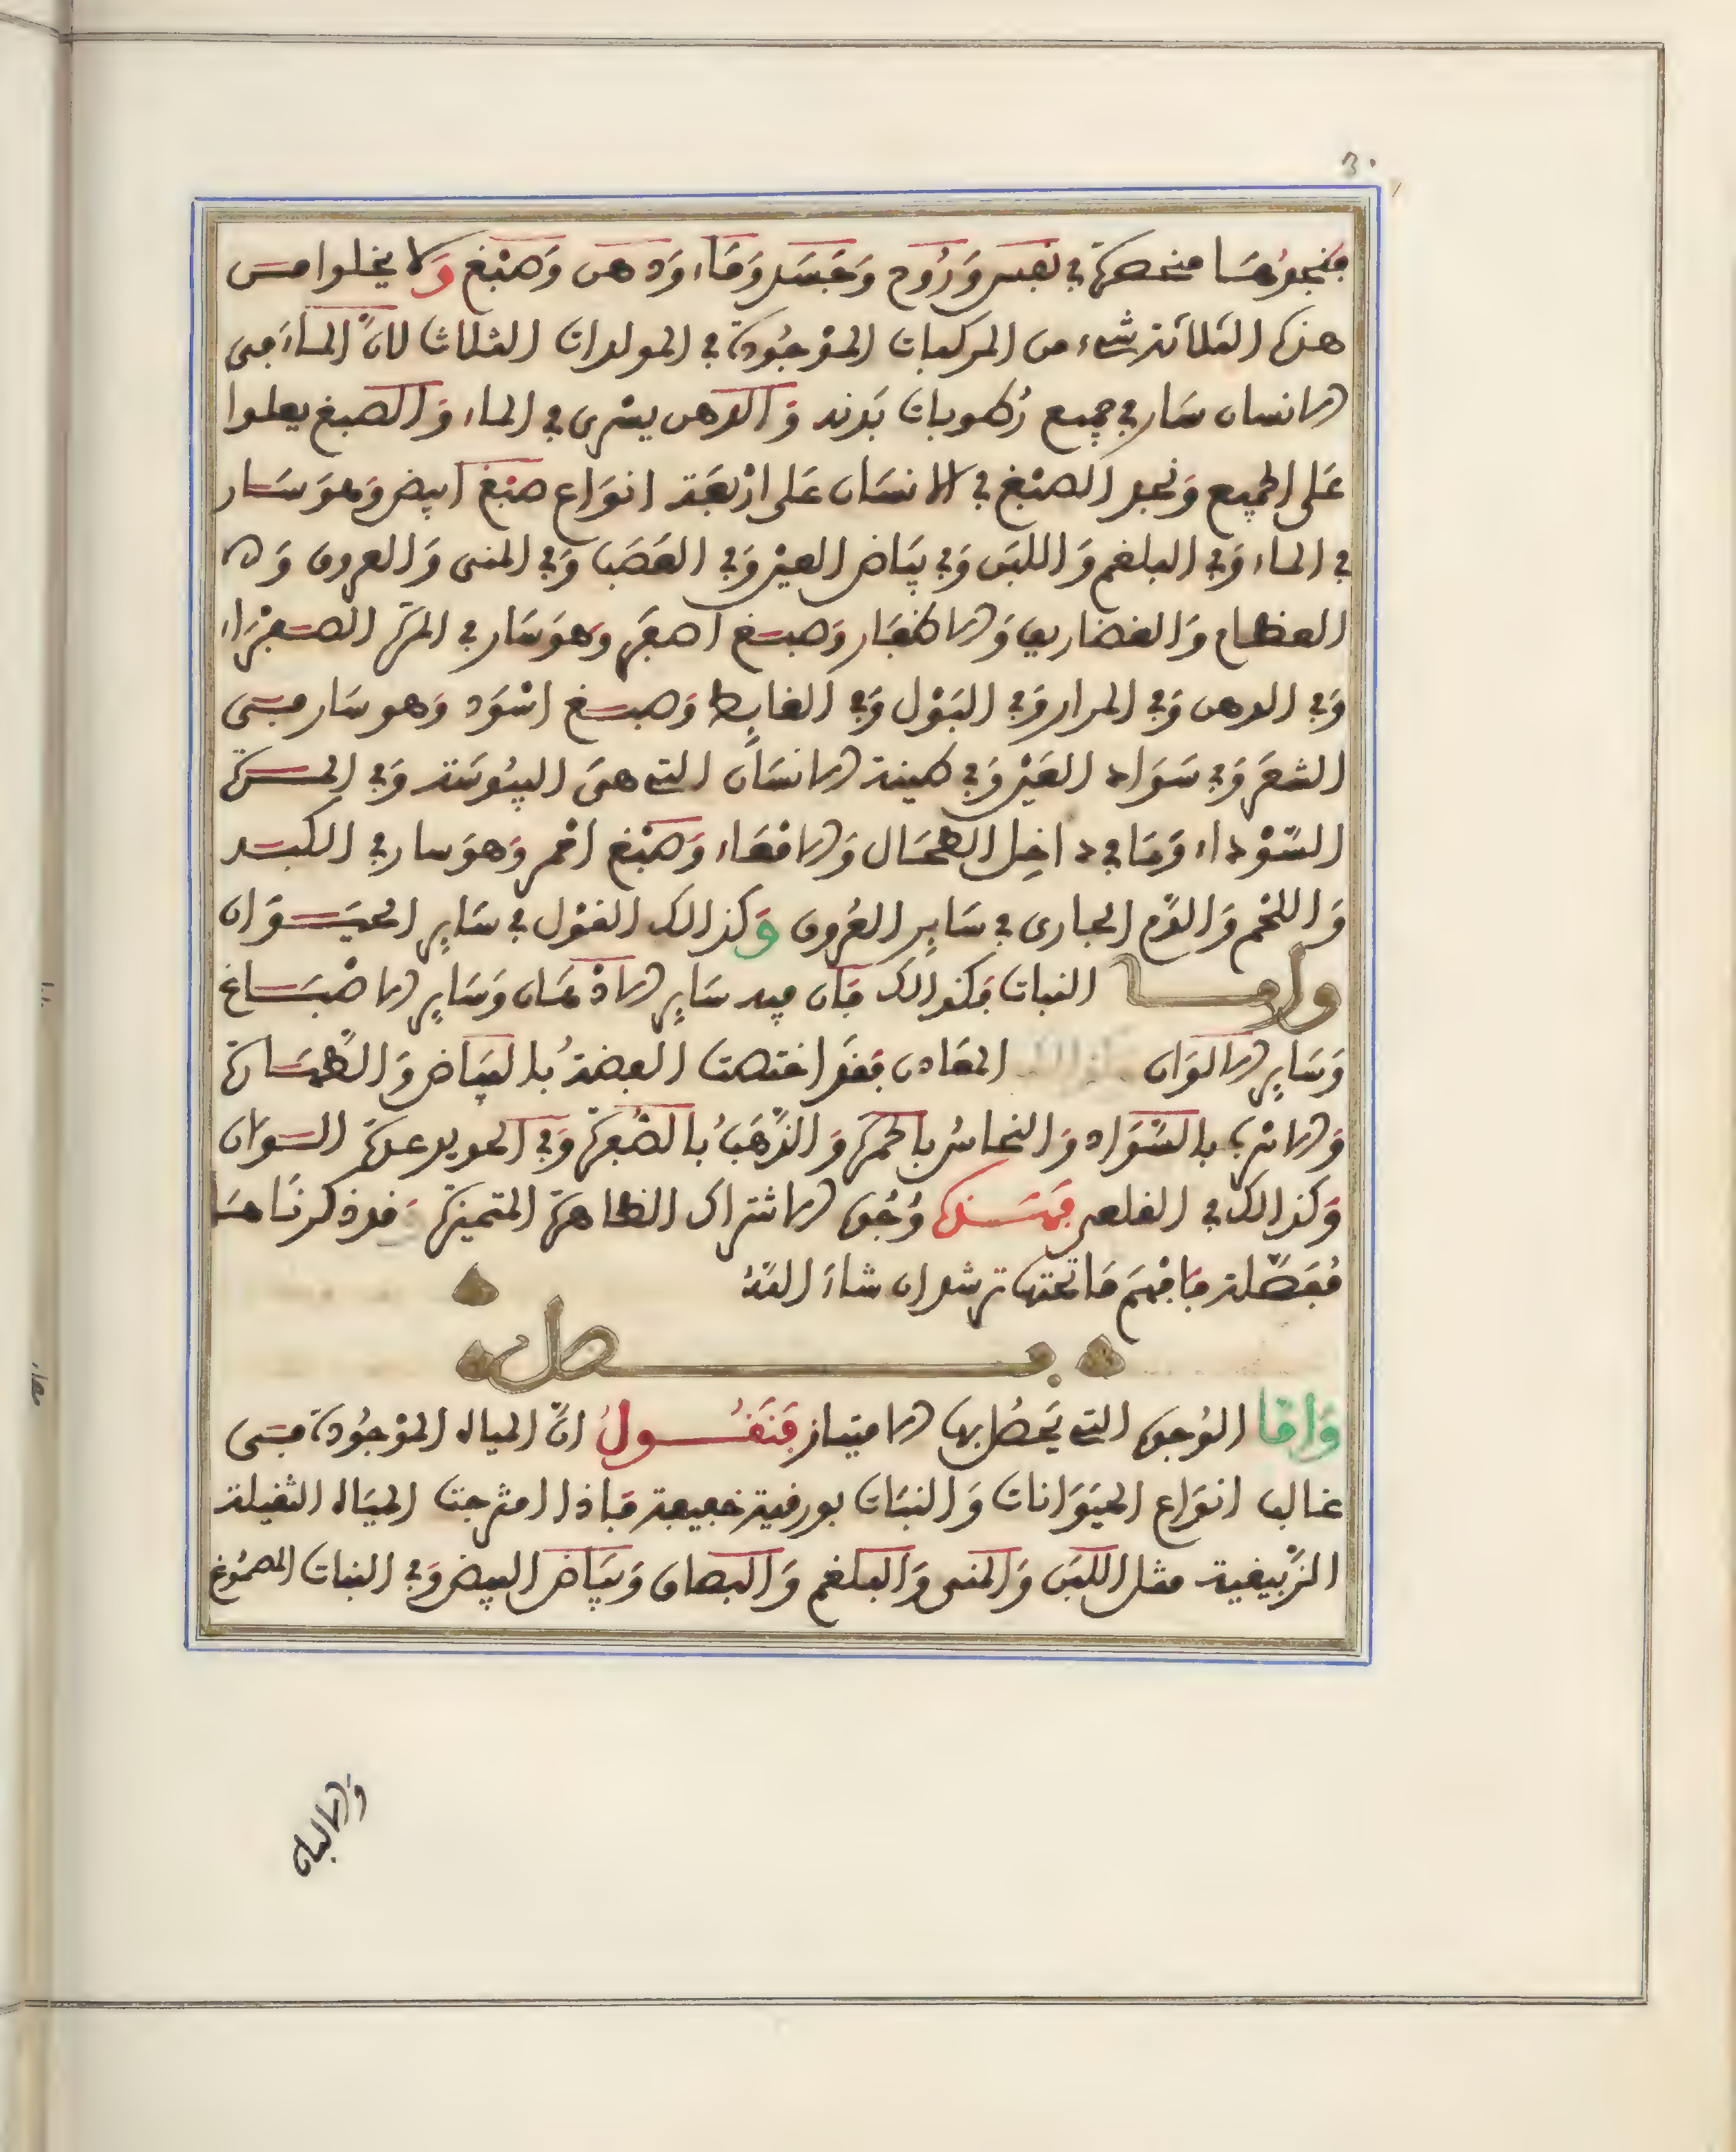 فنجدها منحصرة في نفس وَرُوح وَجَسَد وَمَاء وَدهن وَصَبْغ وَلا يخلوا مـن
هذه الثلاثة شيء من المركبات المَوْجُودة في المولدات الثلاث لانَّ المـاءَ في
الانسان سَار في جميع رُطوبات بَدنه وَالدهن يسْري في الماء وَالصبغ يعلوا
عَلى الجميع وَنجد الصبْغ في الانسَان عَلى ارْبَعَة انوَاع صبْغ ابيض وَهوَ سَـار
في الماء وَفي البلغم وَاللبَن وَفي بيَاض العيْن وَفي العَصَب وَفي المنى وَالعروق وَ
العظام وَالغضاريف وَالاظفَار وَصبـغ اصفَر وَهوَ سَار في المرة الصـفْرَاء
وَفي الدهن وَفي المرار وَفي البَوْل وَفي الغايِط وَصبـغ اسْوَد وَهو سَار فـي
الشعَر وَفي سَوَاد العَيْن وَفي طينة الانسَان التي هيَ اليبُوسَة وَفي المـرة
السَّوْداء وَمَا في داخِل الطحَال وَالامْعَاء وَصَبْغ احْمر وَهوَ سار في الكبـد
وَاللحْم وَالدَّم الجارى في سَايِر العُروق وَكذالك القوْل في سَايِر الحيَـوَان
وامـا النبات فَكذالك فَان فيه سَايِر الادْهَان وَسَايِر الاصْبَـاغ
وَسَايِر الالوَان المعَادن فَقَد اختصت الفضةُ بالبيَاض وَالطهَـارة
وَالاسْرب بالسَّوَاد وَالنحاسُ بالحمرة وَالذَّهَبُ بالصُّفرة وَفي الحديد عدة السـوَان
وَكذالك في القلعي فهَـذه وُجُوه الاشتراك الظاهرة المتميزة قد ذكرنَاهـا
مُفَصَّلة فَافْهَم مَا تحتها ترشد ان شاءَ اللَّهُ
فـصل
وَامَّا الوُجوه التي يَحصُل بها الامتيـاز فَنَقُـولُ انَّ المياه المَوْجُودة فـي
غالب انوَاع الحيَوَانات وَالنبَات بورقية خفيفة فَاذا امْتزجت الميَاه الثقيلة
الزَّيبقية مثل اللبَن وَالمَنى وَالبَلغم وَالبصاق وَبيَاض البيض وَفي النبات الصمُوغ
وَالالبان